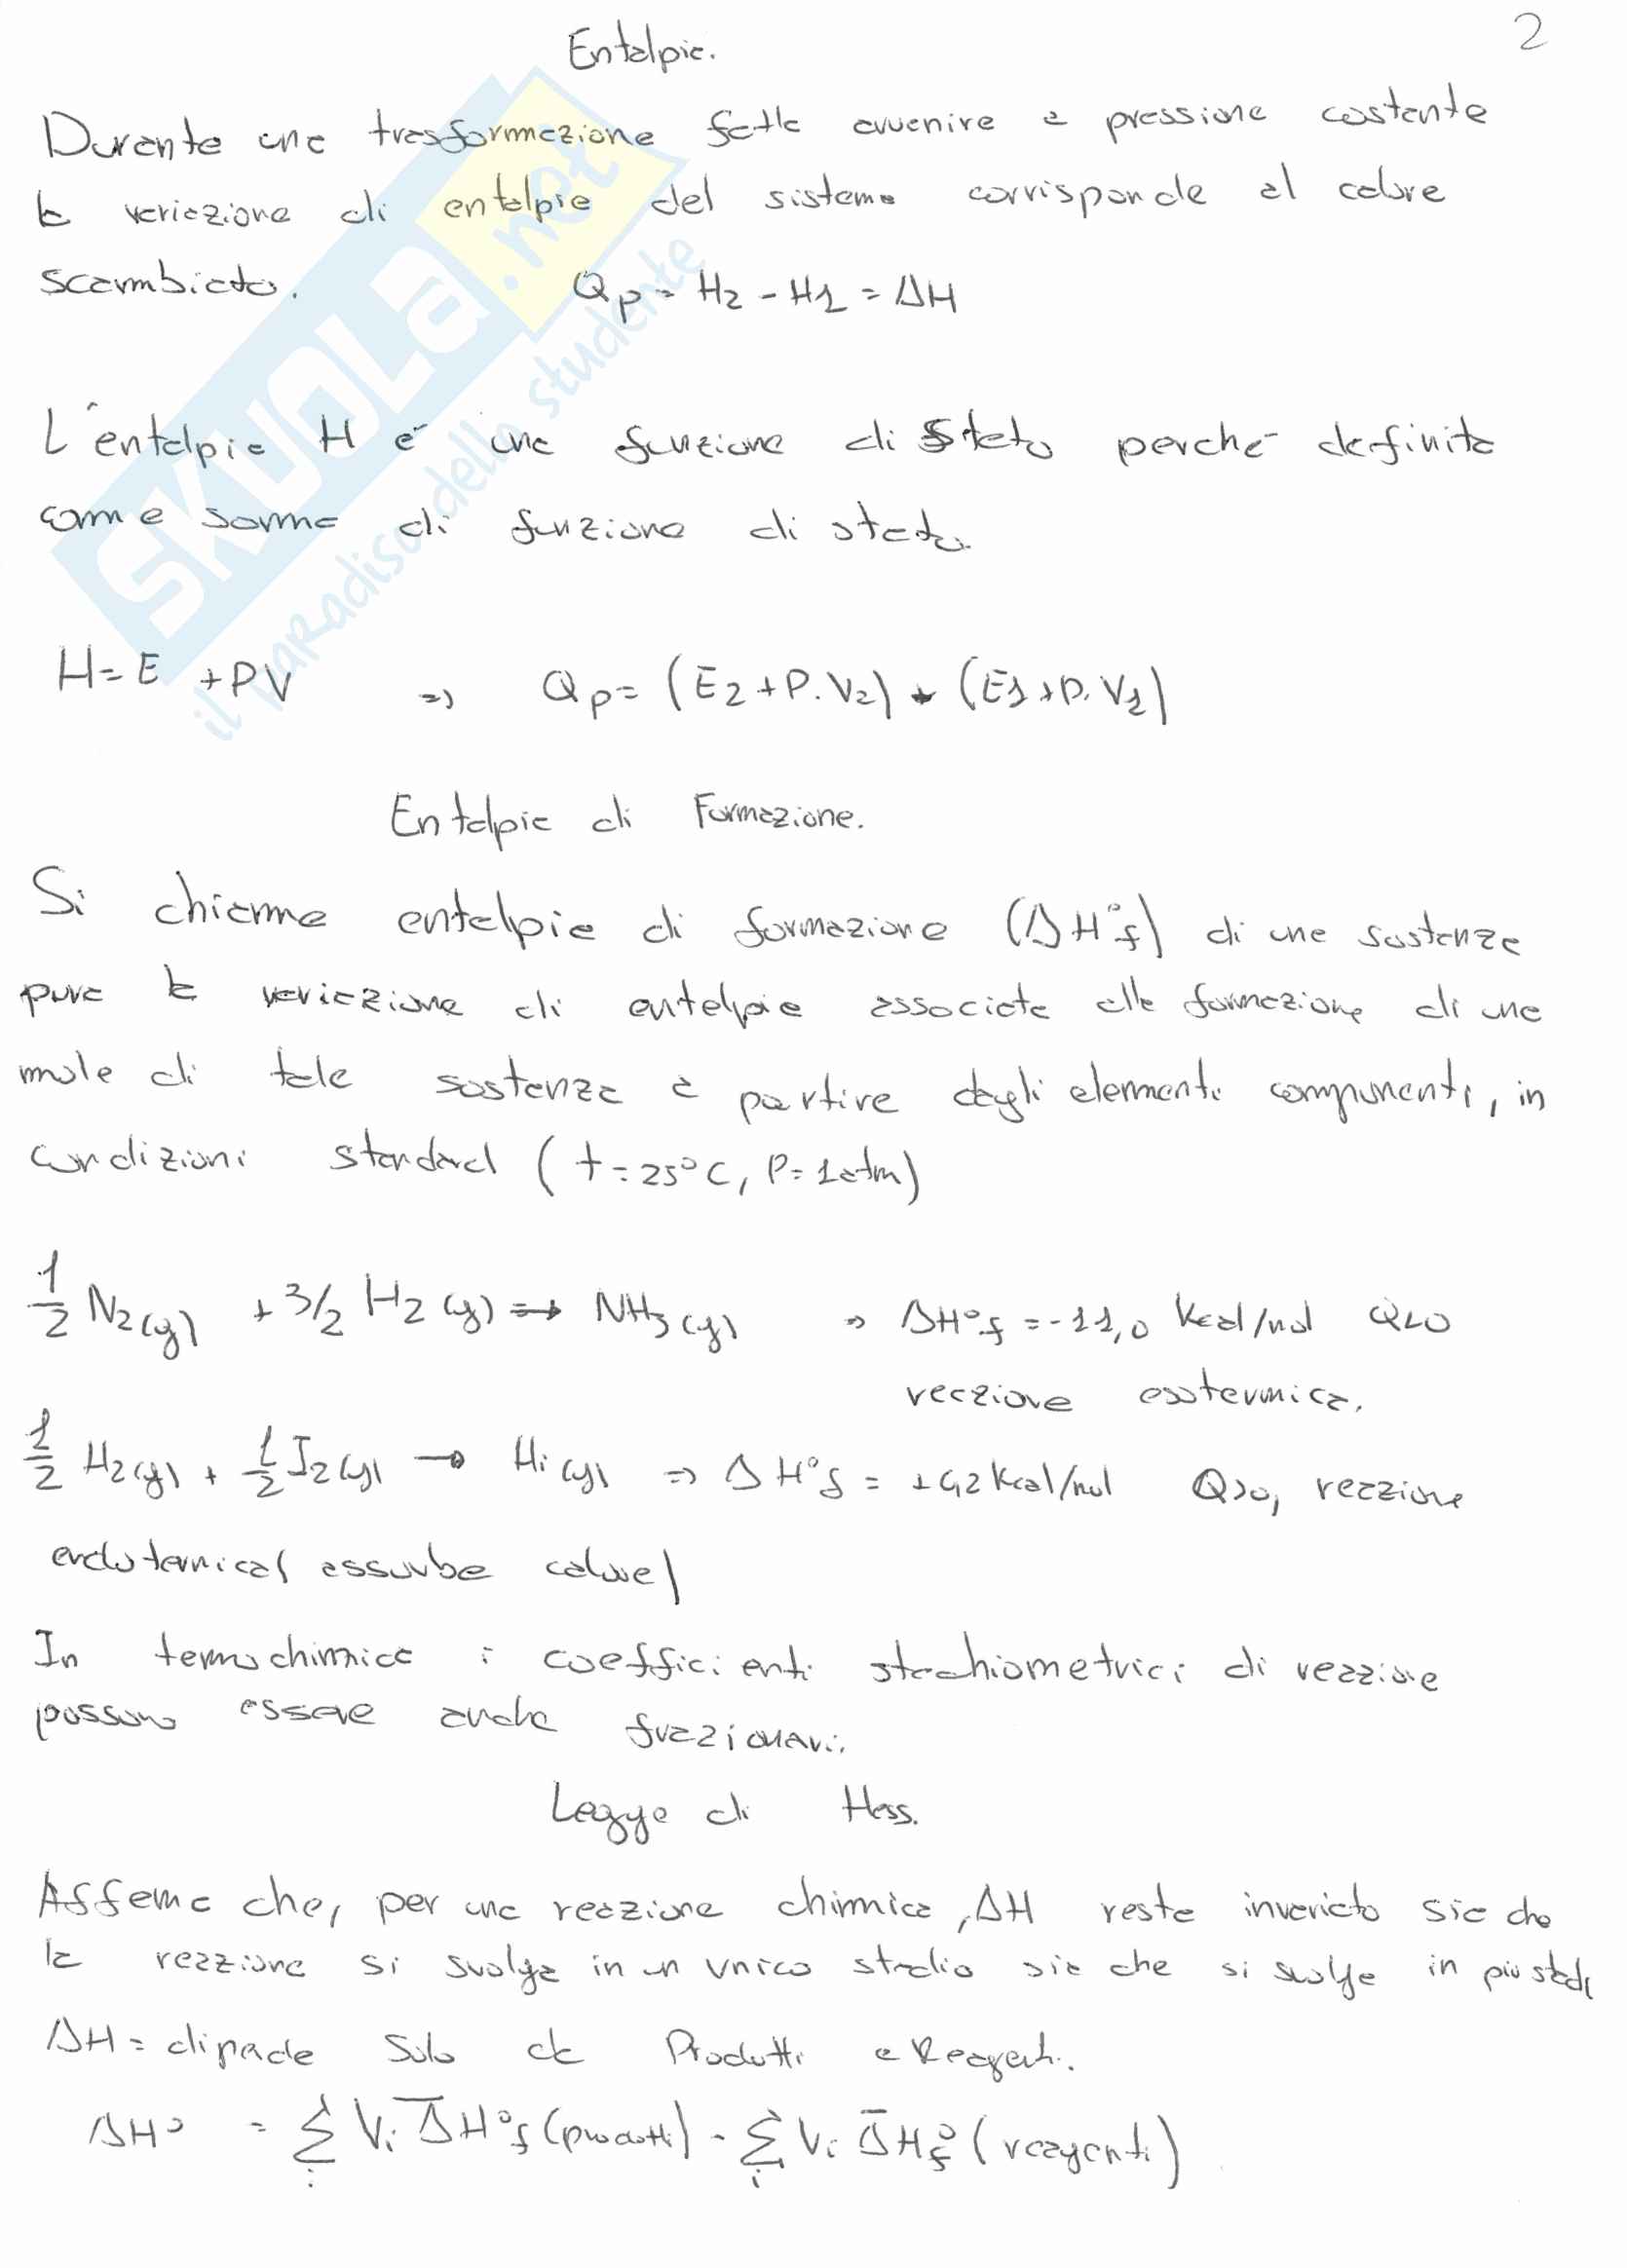 2
Entalpia.
Durante una trasformazione fatta avvenire a pressione costante
la variazione di entalpia del sistema corrisponde al calore
scambiato. Qp = H2 - H1 = ΔH
L'entalpia H é una funzione di stato perché definita
come somma di funzione di stato.
H = E + PV => Qp = (E2 + P. V2) - (E1 + P. V1)
Entalpia di Formazione.
Si chiama entalpia di formazione (ΔH°f) di una sostanza
pura la variazione di entalpia associata alla formazione di una
mole di tale sostanza a partire dagli elementi componenti, in
condizioni standard (t = 25°C, P = 1 atm)
1/2 N2(g) + 3/2 H2(g) → NH3(g) => ΔH°f = -11,0 Kcal/mol Q<0
reazione esotermica.
1/2 H2(g) + 1/2 I2(g) → Hi(g) => ΔH°f = +6,2 Kcal/mol Q>0, reazione
endotermica (assorbe calore)
In termochimica i coefficienti stechiometrici di reazione
possono essere anche frazionari.
Legge di Hess.
Afferma che, per una reazione chimica, ΔH resta invariato sia che
la reazione si svolga in un unico stadio sia che si svolge in più stadi
ΔH = dipende solo da Prodotti e Reagenti.
ΔH° = Σi Vi Δ̅H°f (prodotti) - Σi Vi Δ̅H°f (reagenti)
SKUOLA.net
il paradiso dello studente